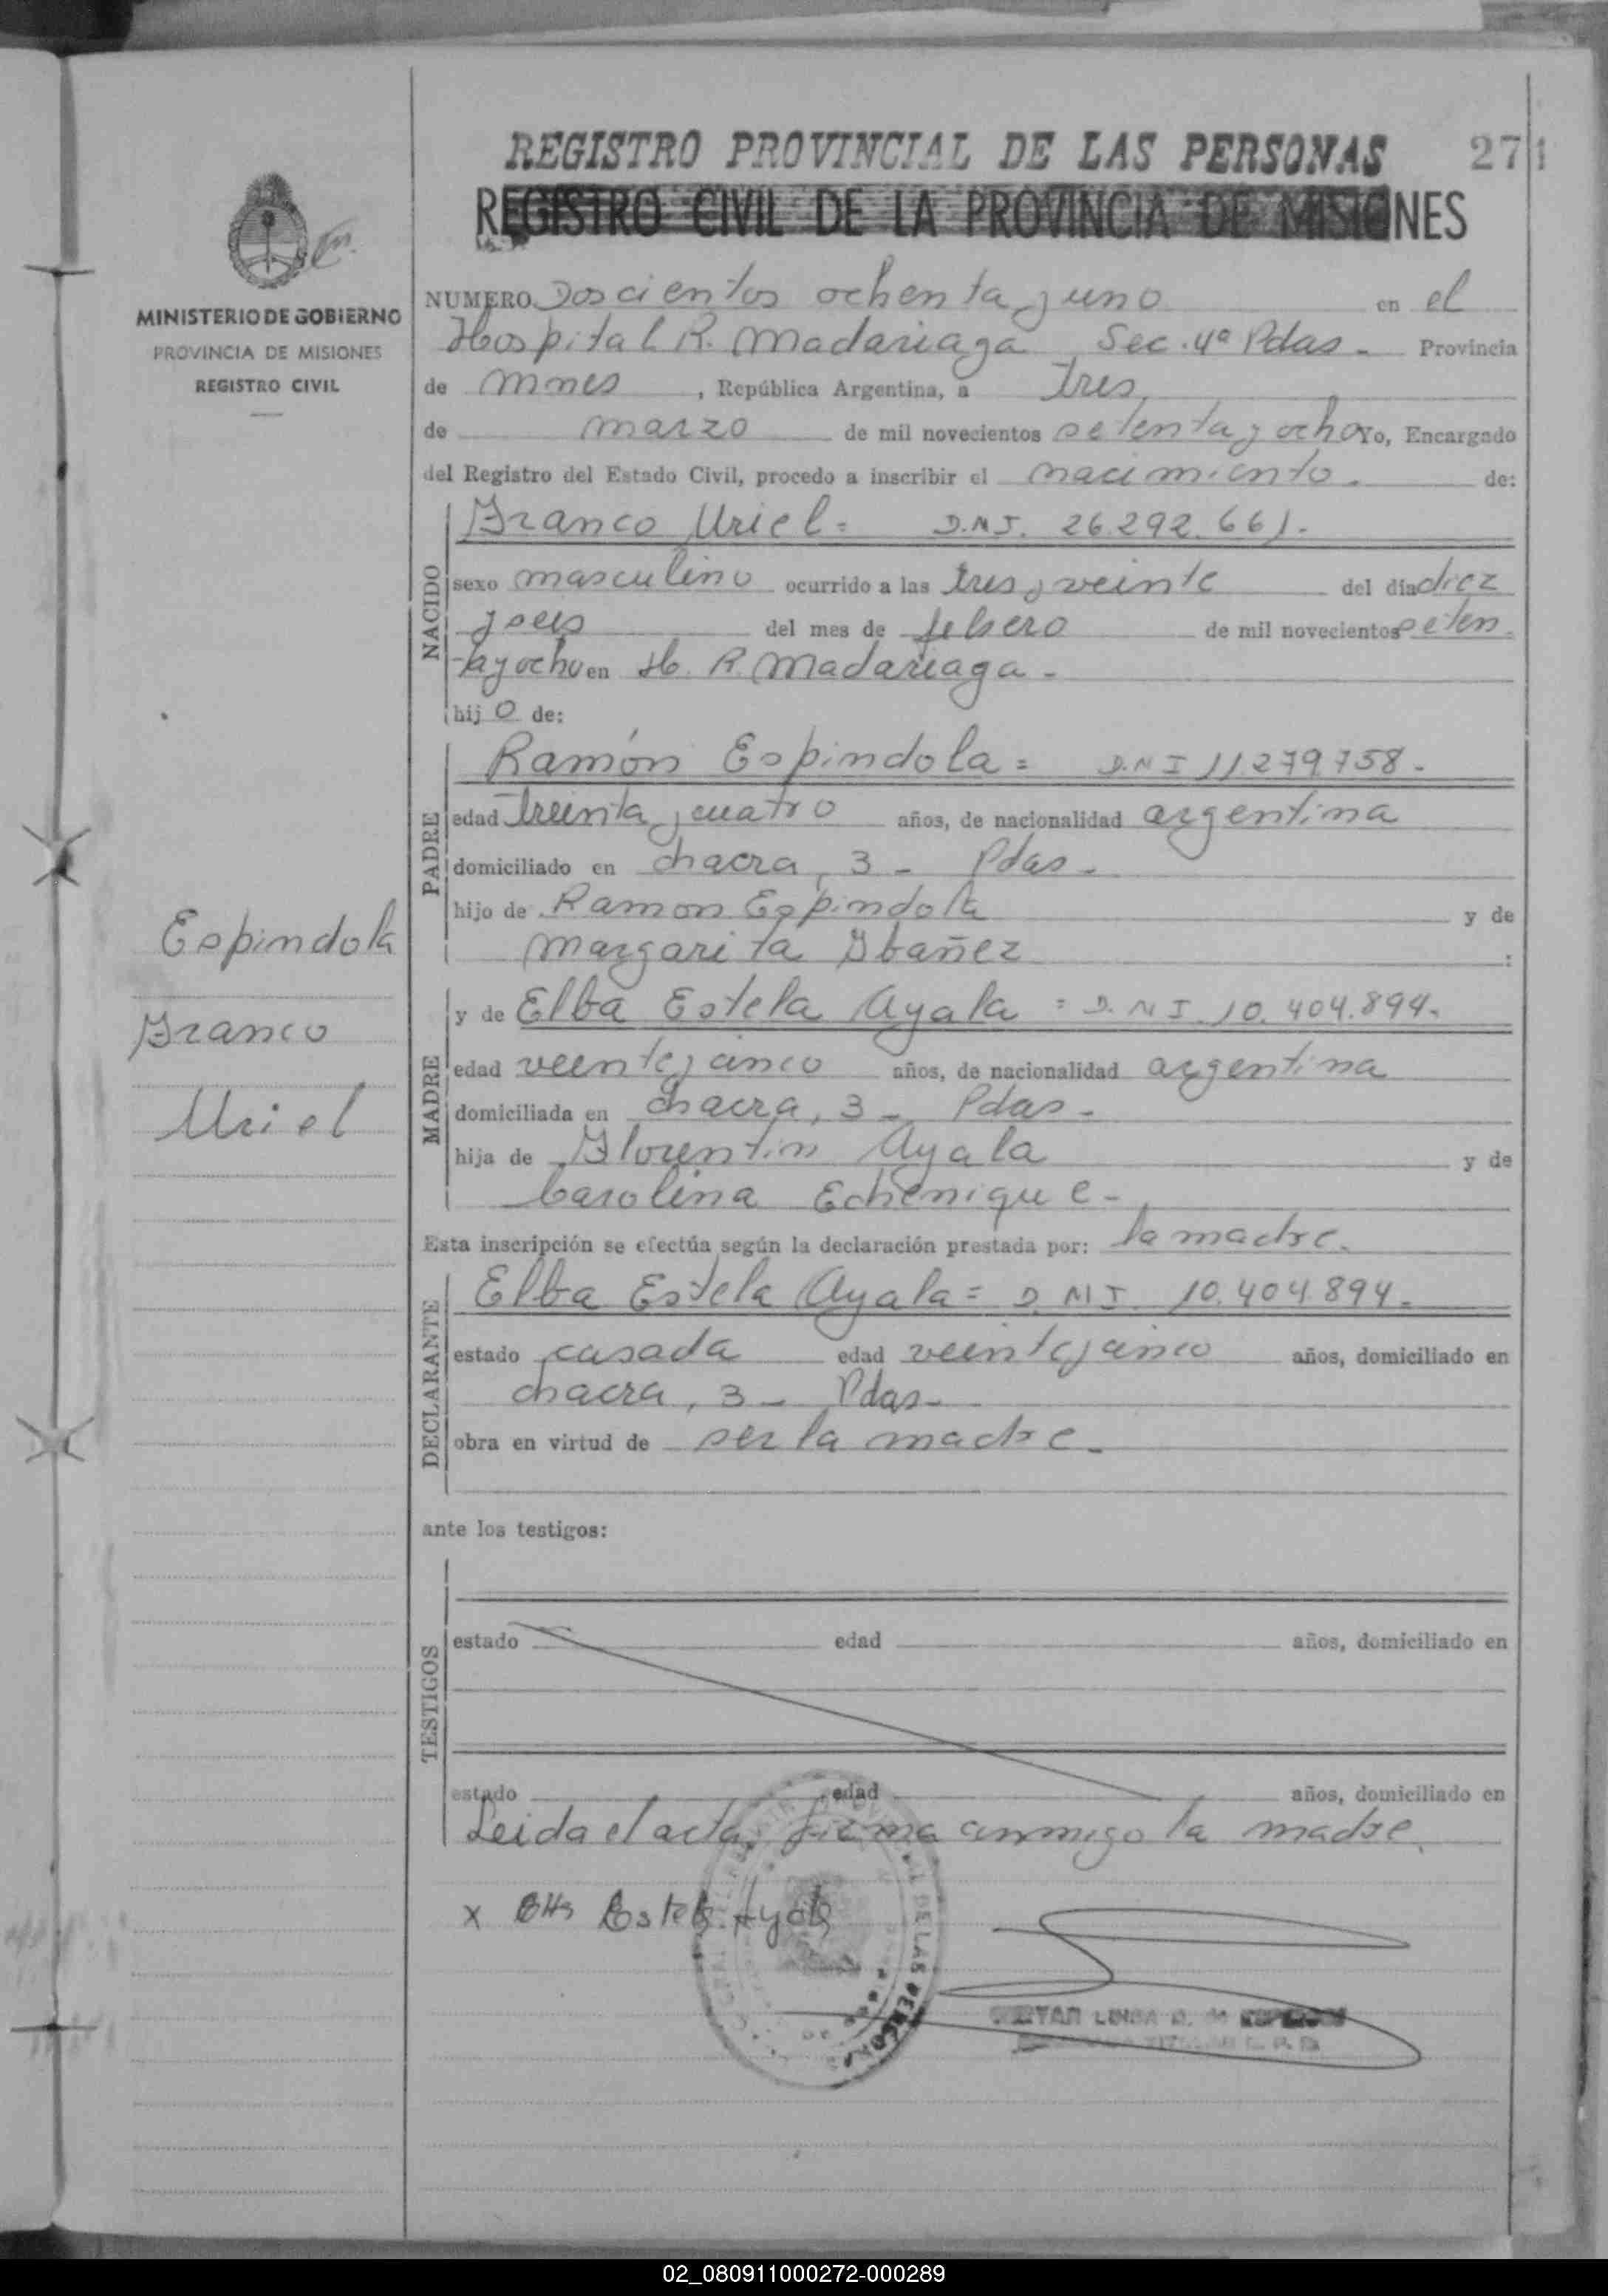 REGISTRO PROVINCIAL DE LAS PERSONAS 271
REGISTRO CIVIL DE LA PROVINCIA DE MISIONES
MINISTERIO DE GOBIERNO
PROVINCIA DE MISIONES
REGISTRO CIVIL
Espindola
Franco
Uriel
NUMERO Doscientos ochenta y uno en el
Hospital R. Madariaga Sec. 4ª Pdas - Provincia
de Mnes, República Argentina, a tres
de marzo de mil novecientos setenta y ocho Yo, Encargado
del Registro del Estado Civil, procedo a inscribir el nacimiento. de:
NACIDO
Franco Uriel = D.N.I. 26.292.661.-
sexo masculino ocurrido a las tres y veinte del día diez
y seis del mes de febrero de mil novecientos seten
ta y ocho en H. R. Madariaga -
hij o de:
PADRE
Ramón Espindola = D.N.I 11.279.758.-
edad treinta y cuatro años, de nacionalidad argentina
domiciliado en chacra, 3 - Pdas -
hijo de Ramon Espindola y de
Margarita Ibañez :
MADRE
y de Elba Estela Ayala = D.N.I. 10.404.894.-
edad veinte y cinco años, de nacionalidad argentina
domiciliada en chacra, 3 - Pdas -
hija de Florentin Ayala y de
Carolina Echenique -
Esta inscripción se efectúa según la declaración prestada por: la madre.
DECLARANTE
Elba Estela Ayala = D.N.I 10.404.894.-
estado casada edad veinte y cinco años, domiciliado en
chacra, 3 - Pdas -
obra en virtud de ser la madre -
ante los testigos:
TESTIGOS
estado edad años, domiciliado en
estado edad años, domiciliado en
Leida el acta, firma conmigo la madre.
x Elba Estela Ayala
DE LAS PERSONAS
02_080911000272-000289